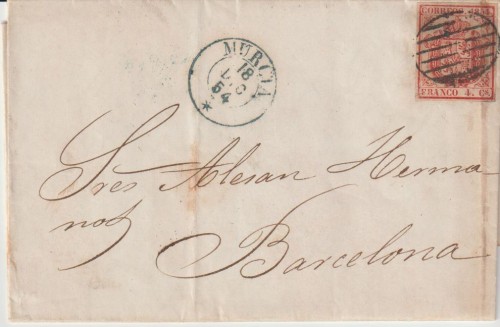 CORREOS 1854
FRANCO 4. Cs
MURCIA
18
DIC
54
Sres Alesan Herma-
nos
Barcelona